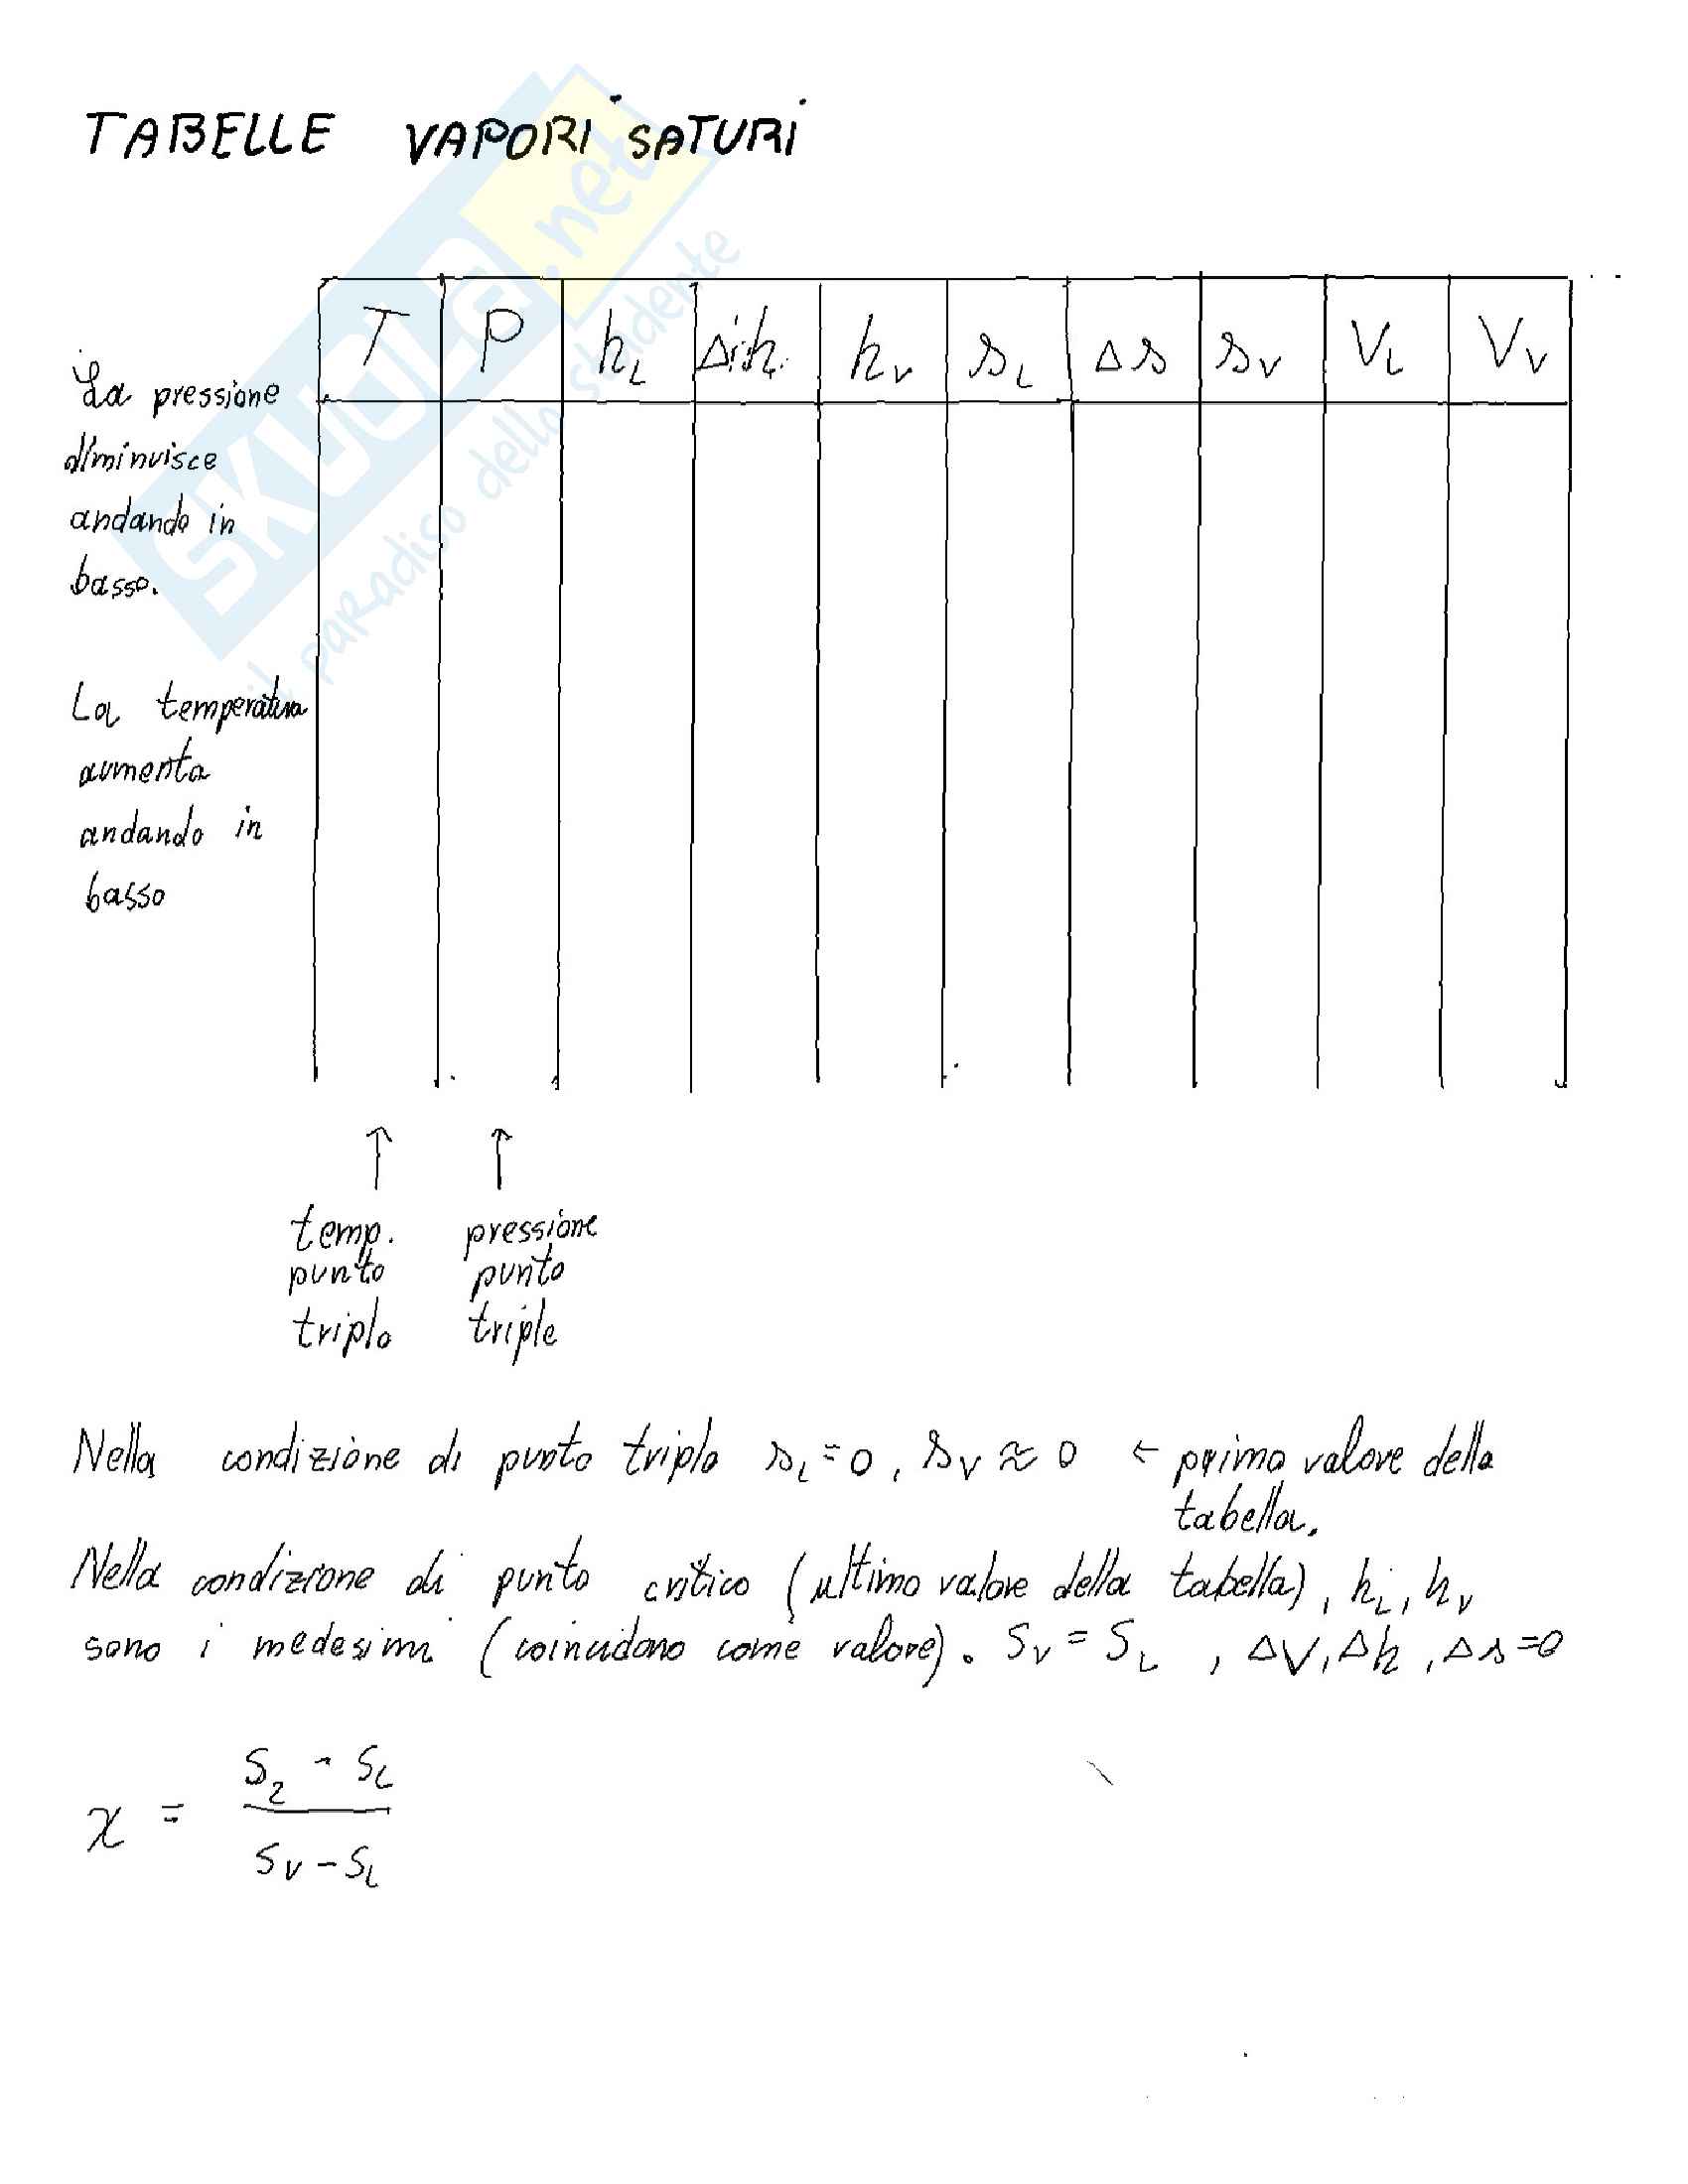 TABELLE VAPORI SATURI
SKUOLA.net
il paradiso dello studente
T P h_L Δh h_V s_L Δs s_V V_L V_V
La pressione
diminuisce
andando in
basso.
La temperatura
aumenta
andando in
basso
↑ ↑
temp. pressione
punto punto
triplo triple
Nella condizione di punto triplo s_L = 0, s_V ≈ 0 ← primo valore della
tabella.
Nella condizione di punto critico (ultimo valore della tabella), h_L, h_V
sono i medesimi (coincidono come valore). S_V = S_L, ΔV, Δh, Δs = 0
S_2 - S_L
x =
S_V - S_L